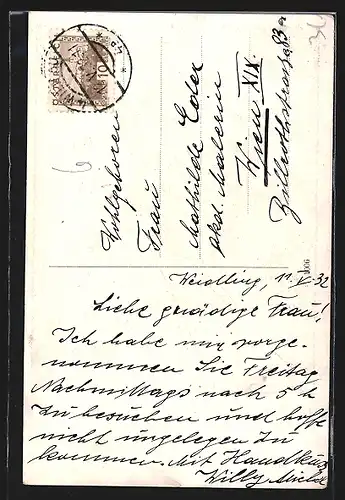 Wohlgeboren
Frau
Mathilde Esler
akad. Malerin
Wien XIX.
Billrothstrasse 83a
Weidling, 11.V.32
Liebe gnädige Frau!
Ich habe mir vorge-
nommen Sie Freitag
Nachmittags nach 5 h
zu besuchen und hoffe
nicht ungelegen zu
kommen. Mit Handkuss
Willy